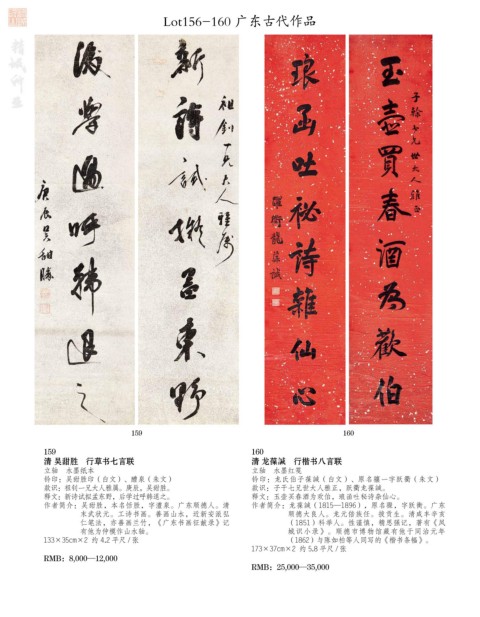 Lot156-160 广东古代作品
精诚所至
新詩試擬孟東野
祖釗一兄大人雅屬
後學過呼韩退之
庚辰吴甜勝
玉壺買春酒為歡伯
琅函吐祕詩雜仙心
羅衡龍葆諴
159
160
159
清 吴甜胜 行草书七言联
立轴 水墨纸本
钤印：吴甜胜印（白文）、醴泉（朱文）
款识：祖钊一兄大人雅属。庚辰，吴甜胜。
释文：新诗试拟孟东野，后学过呼韩退之。
作者简介：吴甜胜，本名恬胜，字醴泉。广东顺德人。清
末武状元。工诗书画。善画山水，近新安派弘
仁笔法，亦喜画兰竹，《广东书画征献录》记
有他为仲襥作山水轴。
133×35cm×2 约 4.2 平尺/张
RMB: 8,000—12,000
160
清 龙葆諴 行楷书八言联
立轴 水墨红笺
钤印：龙氏伯子葆諴（白文）、原名骧一字跃衢（朱文）
款识：子干七兄世大人雅正，跃衢龙葆諴。
释文：玉壶买春酒为欢伯，琅函吐秘诗杂仙心。
作者简介：龙葆諴（1815—1896），原名骧，字跃衢。广东
顺德大良人。来元倍族任。拔贡生。清咸丰辛亥
（1851）科举人。性谨慎，精思摄记，著有《凤
城识小录》。顺德市博物馆藏有他于同治元年
（1862）与陈如松等人同写的《楷书条幅》。
173×37cm×2 约 5.8 平尺/张
RMB: 25,000—35,000